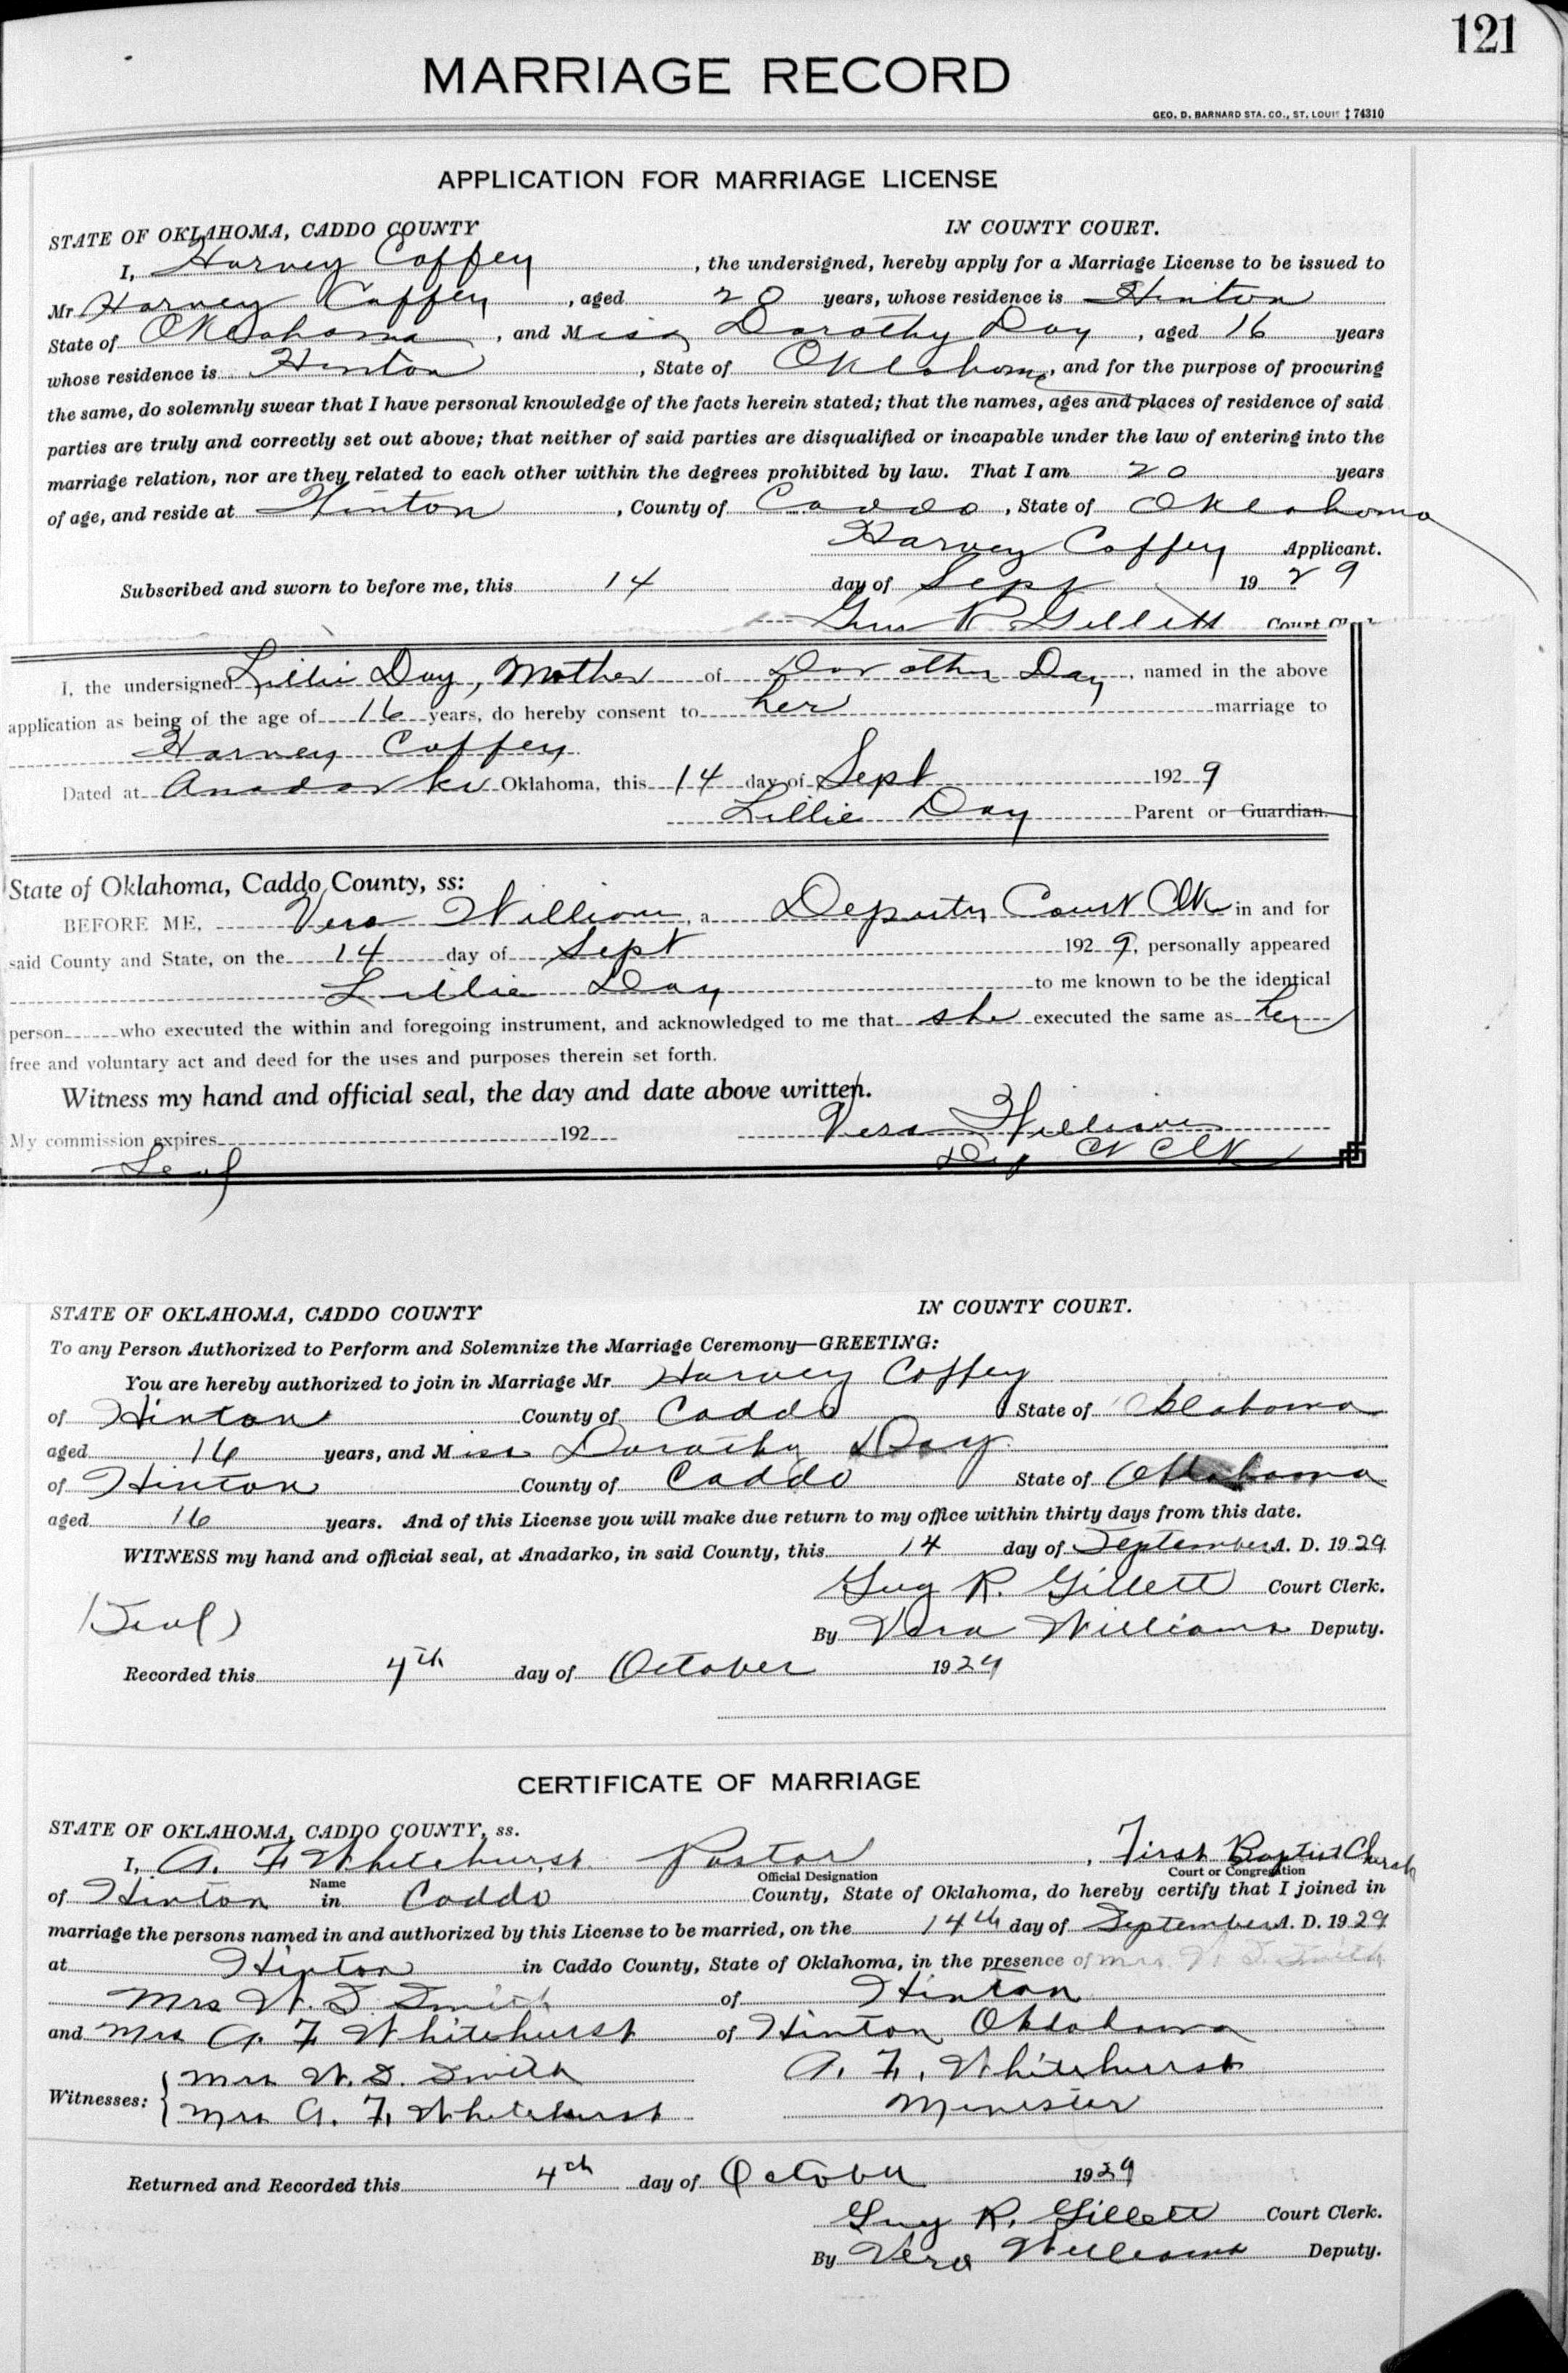 121
MARRIAGE RECORD
GEO. D. BARNARD STA. CO., ST. LOUIS ‡ 74310
APPLICATION FOR MARRIAGE LICENSE
STATE OF OKLAHOMA, CADDO COUNTY IN COUNTY COURT.
I, Harvey Coffey, the undersigned, hereby apply for a Marriage License to be issued to
Mr Harvey Coffey, aged 20 years, whose residence is Hinton
State of Oklahoma, and Miss Dorothy Day, aged 16 years
whose residence is Hinton, State of Oklahoma, and for the purpose of procuring
the same, do solemnly swear that I have personal knowledge of the facts herein stated; that the names, ages and places of residence of said
parties are truly and correctly set out above; that neither of said parties are disqualified or incapable under the law of entering into the
marriage relation, nor are they related to each other within the degrees prohibited by law. That I am 20 years
of age, and reside at Hinton, County of Caddo, State of Oklahoma
Harvey Coffey Applicant.
Subscribed and sworn to before me, this 14 day of Sept 1929
Guy R. Gillett Court
I, the undersigned Lillie Day, Mother of Dorothy Day, named in the above
application as being of the age of 16 years, do hereby consent to her marriage to
Harvey Coffey.
Dated at Anadarko Oklahoma, this 14 day of Sept 1929
Lillie Day Parent or Guardian.
State of Oklahoma, Caddo County, ss:
BEFORE ME, Vera Williams, a Deputy Court Clk in and for
said County and State, on the 14 day of Sept 1929, personally appeared
Lillie Day to me known to be the identical
person who executed the within and foregoing instrument, and acknowledged to me that she executed the same as her
free and voluntary act and deed for the uses and purposes therein set forth.
Witness my hand and official seal, the day and date above written.
My commission expires 192 Vera Williams
Seal Dep Ct Clk
STATE OF OKLAHOMA, CADDO COUNTY IN COUNTY COURT.
To any Person Authorized to Perform and Solemnize the Marriage Ceremony—GREETING:
You are hereby authorized to join in Marriage Mr Harvey Coffey
of Hinton County of Caddo State of Oklahoma
aged 16 years, and Miss Dorothy Day
of Hinton County of Caddo State of Oklahoma
aged 16 years. And of this License you will make due return to my office within thirty days from this date.
WITNESS my hand and official seal, at Anadarko, in said County, this 14 day of September A. D. 1929
Guy R. Gillett Court Clerk.
(Seal) By Vera Williams Deputy.
Recorded this 4th day of October 1929
CERTIFICATE OF MARRIAGE
STATE OF OKLAHOMA, CADDO COUNTY, ss.
I, A. F. Whitehurst Pastor, First Baptist Church
Name Official Designation Court or Congregation
of Hinton in Caddo County, State of Oklahoma, do hereby certify that I joined in
marriage the persons named in and authorized by this License to be married, on the 14th day of September A. D. 1929
at Hinton in Caddo County, State of Oklahoma, in the presence of Mrs W. D. Smith
Mrs W. D. Smith of Hinton
and Mrs A. F. Whitehurst of Hinton Oklahoma
Witnesses: Mrs W. D. Smith A. F. Whitehurst
Mrs A. F. Whitehurst Minister
Returned and Recorded this 4th day of October 1929
Guy R. Gillett Court Clerk.
By Vera Williams Deputy.